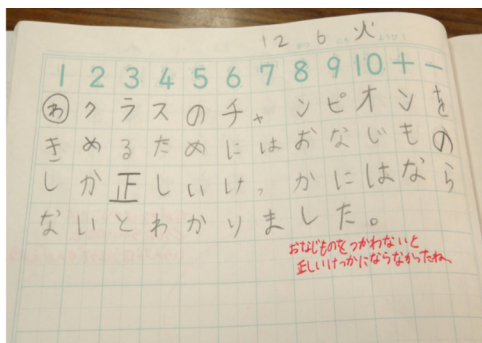 12 がつ 6 にち 火 ようび
1 2 3 4 5 6 7 8 9 10 + −
わ クラスのチャンピオンを
きめるためにはおなじもの
しか正しいけっかにはなら
ないとわかりました。
おなじものをつかわないと
正しいけっかにならなかったね。